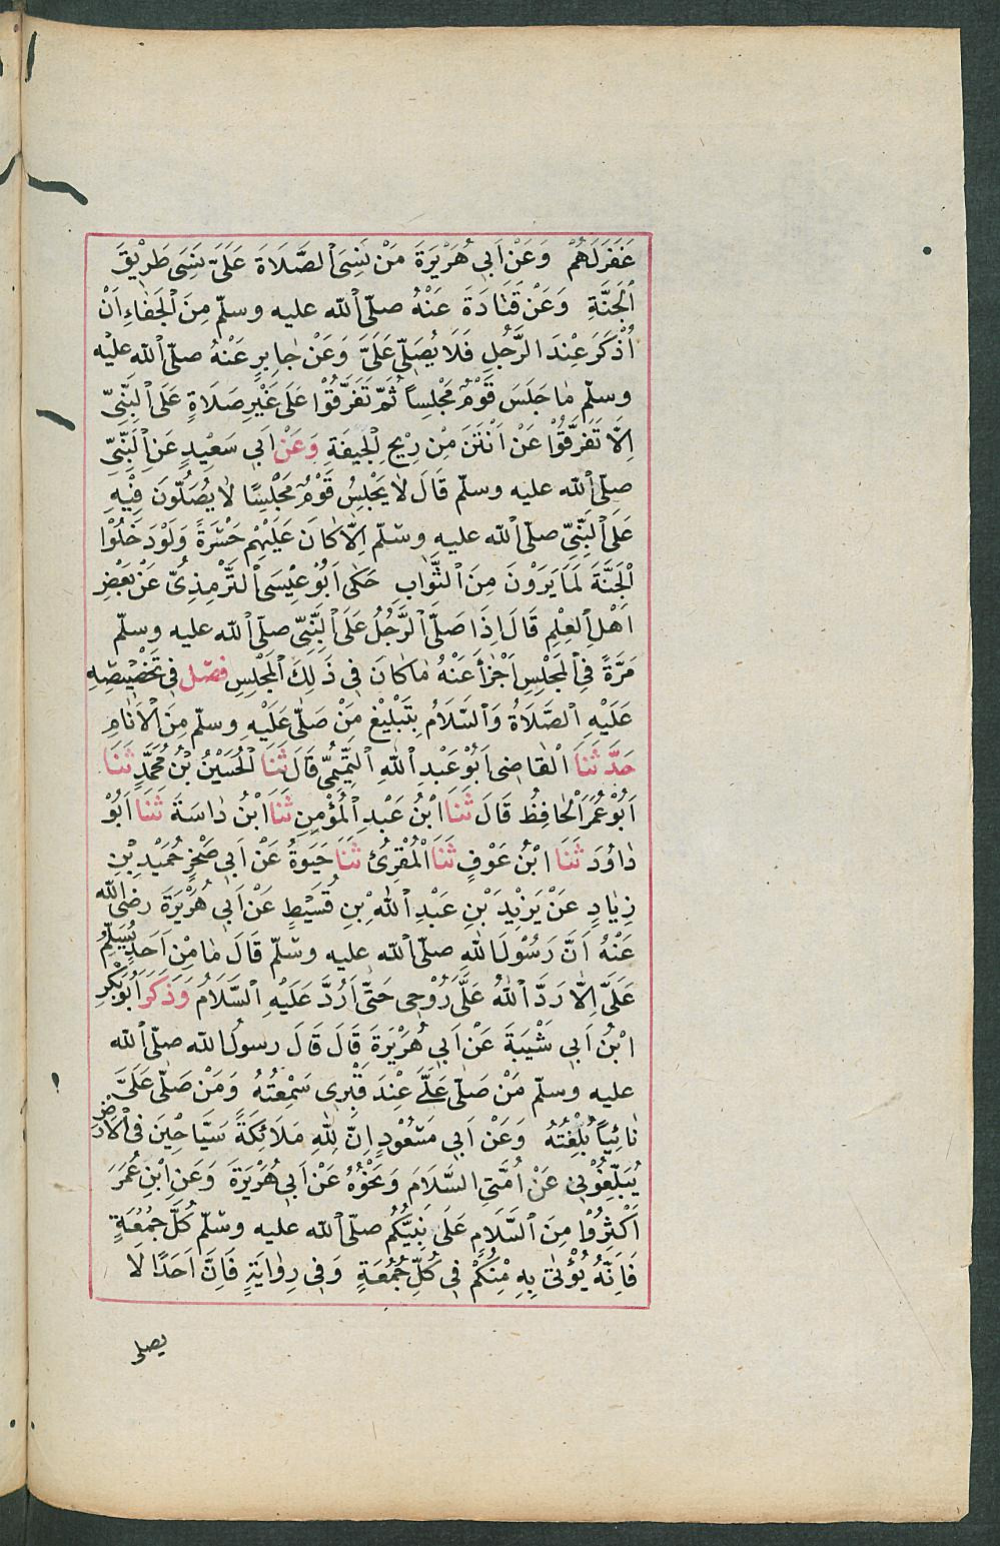 غَفَرَ لَهُمْ وَعَنْ اَبِي هُرَيْرَةَ مَنْ نَسِيَ الصَّلَاةَ عَلَيَّ نَسِيَ طَرِيْقَ
الْجَنَّةِ وَعَنْ قَتَادَةَ عَنْهُ صلّى الله عليه وسلّم مِنَ الْجَفَاءِ اَنْ
اُذْكَرَ عِنْدَ الرَّجُلِ فَلَا يُصَلِّي عَلَيَّ وَعَنْ جَابِرٍ عَنْهُ صلّى الله عليه
وسلّم مَا جَلَسَ قَوْمٌ مَجْلِسًا ثُمَّ تَفَرَّقُوْا عَلَى غَيْرِ صَلَاةٍ عَلَى النَّبِيّ
اِلَّا تَفَرَّقُوْا عَنْ اَنْتَنَ مِنْ رِيْحِ الْجِيفَةِ وَعَنْ اَبِي سَعِيْدٍ عَنِ النَّبِيِّ
صلّى الله عليه وسلّم قَالَ لَا يَجْلِسُ قَوْمٌ مَجْلِسًا لَا يُصَلُّونَ فِيْهِ
عَلَى النَّبِيِّ صلّى الله عليه وسلّم اِلَّا كَانَ عَلَيْهِمْ حَسْرَةً وَلَوْ دَخَلُوْا
الْجَنَّةَ لَمَا يَرَوْنَ مِنَ الثَّوَابِ حَكَى اَبُوْ عِيْسَى التَّرْمِذِيُّ عَنْ بَعْضِ
اَهْلِ الْعِلْمِ قَالَ اِذَا صَلَّى الرَّجُلُ عَلَى النَّبِيِّ صلّى الله عليه وسلّم
مَرَّةً فِي الْمَجْلِسِ اَجْزَأَ عَنْهُ مَا كَانَ فِي ذَلِكَ الْمَجْلِسِ فصْل في تَخْصِيْصِهِ
عَلَيْهِ الصَّلَاةُ وَالسَّلَامُ بِتَبْلِيْغِ مَنْ صَلَّى عَلَيْهِ وسلّم مِنَ الْاَنَامِ
حَدَّثَنَا الْقَاضِى اَبُوْ عَبْدِ اللهِ التَّمِيْمِيُّ قَالَ ثَنَا الْحُسَيْنُ بْنُ مُحَمَّدٍ ثَنَا
اَبُوْ عُمَرَ الْحَافِظُ قَالَ ثَنَا ابْنُ عَبْدِ الْمُؤْمِنِ ثَنَا ابْنُ دَاسَةَ ثَنَا اَبُوْ
دَاوُدَ ثَنَا ابْنُ عَوْفٍ ثَنَا الْمُقْرِئُ ثَنَا حَيَوَةُ عَنْ اَبِي صَخْرٍ حُمَيْدِ بْنِ
زِيَادٍ عَنْ يَزِيْدَ بْنِ عَبْدِ اللهِ بْنِ قُسَيْطٍ عَنْ اَبِي هُرَيْرَةَ رضى الله
عَنْهُ اَنَّ رَسُوْلَ اللهِ صلّى الله عليه وسلّم قَالَ مَا مِنْ اَحَدٍ يُسَلِّمُ
عَلَيَّ اِلَّا رَدَّ اللهُ عَلَيَّ رُوْحِى حَتَّى اَرُدَّ عَلَيْهِ السَّلَامُ وَذَكَرَ اَبُوْ بَكْرِ
ابْنُ اَبِي شَيْبَةَ عَنْ اَبِي هُرَيْرَةَ قَالَ قَالَ رسولُ الله صلّى الله
عليه وسلّم مَنْ صَلَّى عَلَيَّ عِنْدَ قَبْرِى سَمِعْتُهُ وَمَنْ صَلَّى عَلَيَّ
نَائِيًا بُلِّغْتُهُ وَعَنْ اَبِي مَسْعُوْدٍ اِنَّ لِلّٰهِ مَلَائِكَةً سَيَّاحِيْنَ فِي الْاَرْضِ
يُبَلِّغُوْنِي عَنْ اُمَّتِي السَّلَامَ وَنَحْوُهُ عَنْ اَبِي هُرَيْرَةَ وَعَنِ ابْنِ عُمَرَ
اَكْثِرُوْا مِنَ السَّلَامِ عَلَى نَبِيِّكُمْ صلّى الله عليه وسلّم كُلَّ جُمُعَةٍ
فَاِنَّهُ يُؤْتَى بِهِ مِنْكُمْ فِي كُلِّ جُمُعَةٍ وَفِي رِوَايَةٍ فَاِنَّ اَحَدًا لَا
يصلى